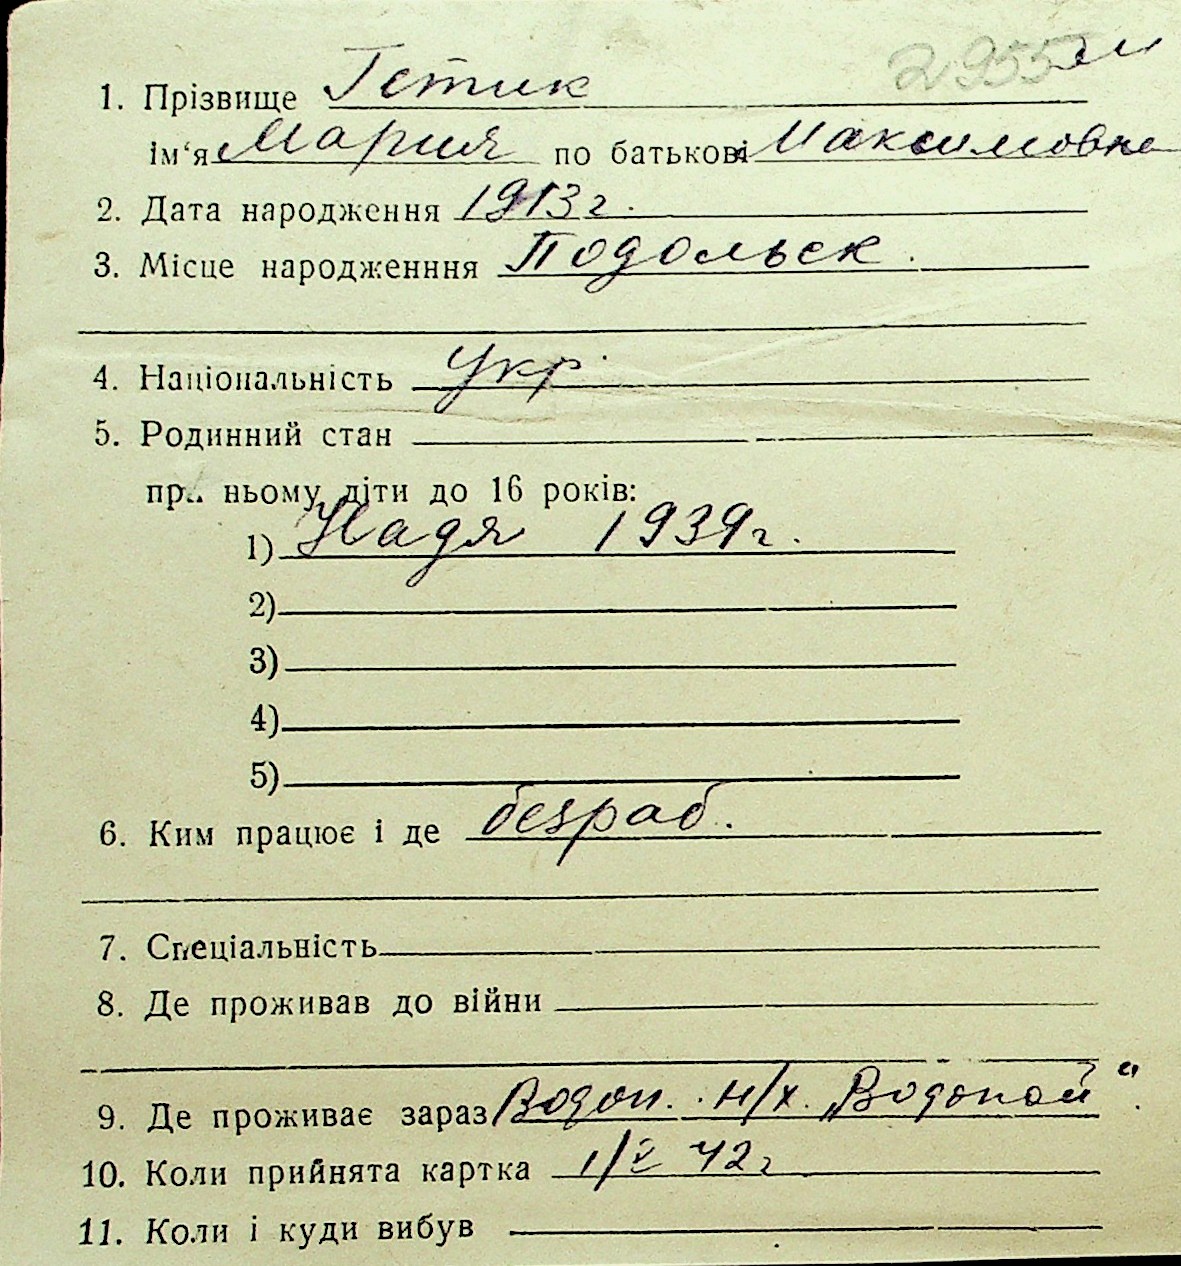 2955
1. Прізвище Гетик
ім'я Мария по батькові Максимовна
2. Дата народження 1913 г.
3. Місце народженння Подольск.
4. Національність Укр.
5. Родинний стан
при ньому діти до 16 років:
1) Надя 1939 г.
2)
3)
4)
5)
6. Ким працює і де безраб.
7. Спеціальність
8. Де проживав до війни
9. Де проживає зараз Водоп. н/х. „Водопой“.
10. Коли прийнята картка 1/V 42 г
11. Коли і куди вибув